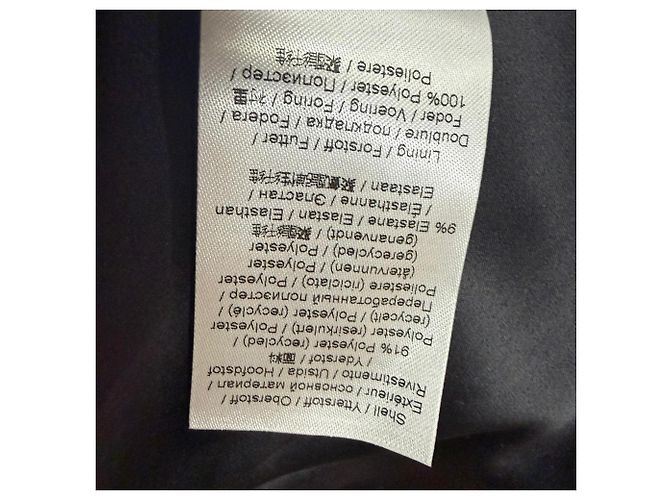 Shell / Ytterstoff / Oberstoff /
Extérieur / основной материал /
Rivestimento / Utsida / Hoofdstof
/ Yderstof / 面料
91% Polyester (recycled) /
Polyester (resirkulert) / Polyester
(recycelt) / Polyester (recyclé) /
Переработанный полиэстер /
Poliestere (riciclato) / Polyester
(återvunnen) / Polyester
(gerecycled) / Polyester
(genanvendt) / 聚酯纤维
9% Elastane / Elastan / Elasthan
/ Élasthanne / Эластан /
Elastaan
Lining / Forstoff / Futter /
Doublure / подкладка / Fodera /
Foder / Voering / Foring / 衬里
100% Polyester / Полиэстер /
Poliestere / 聚酯纤维